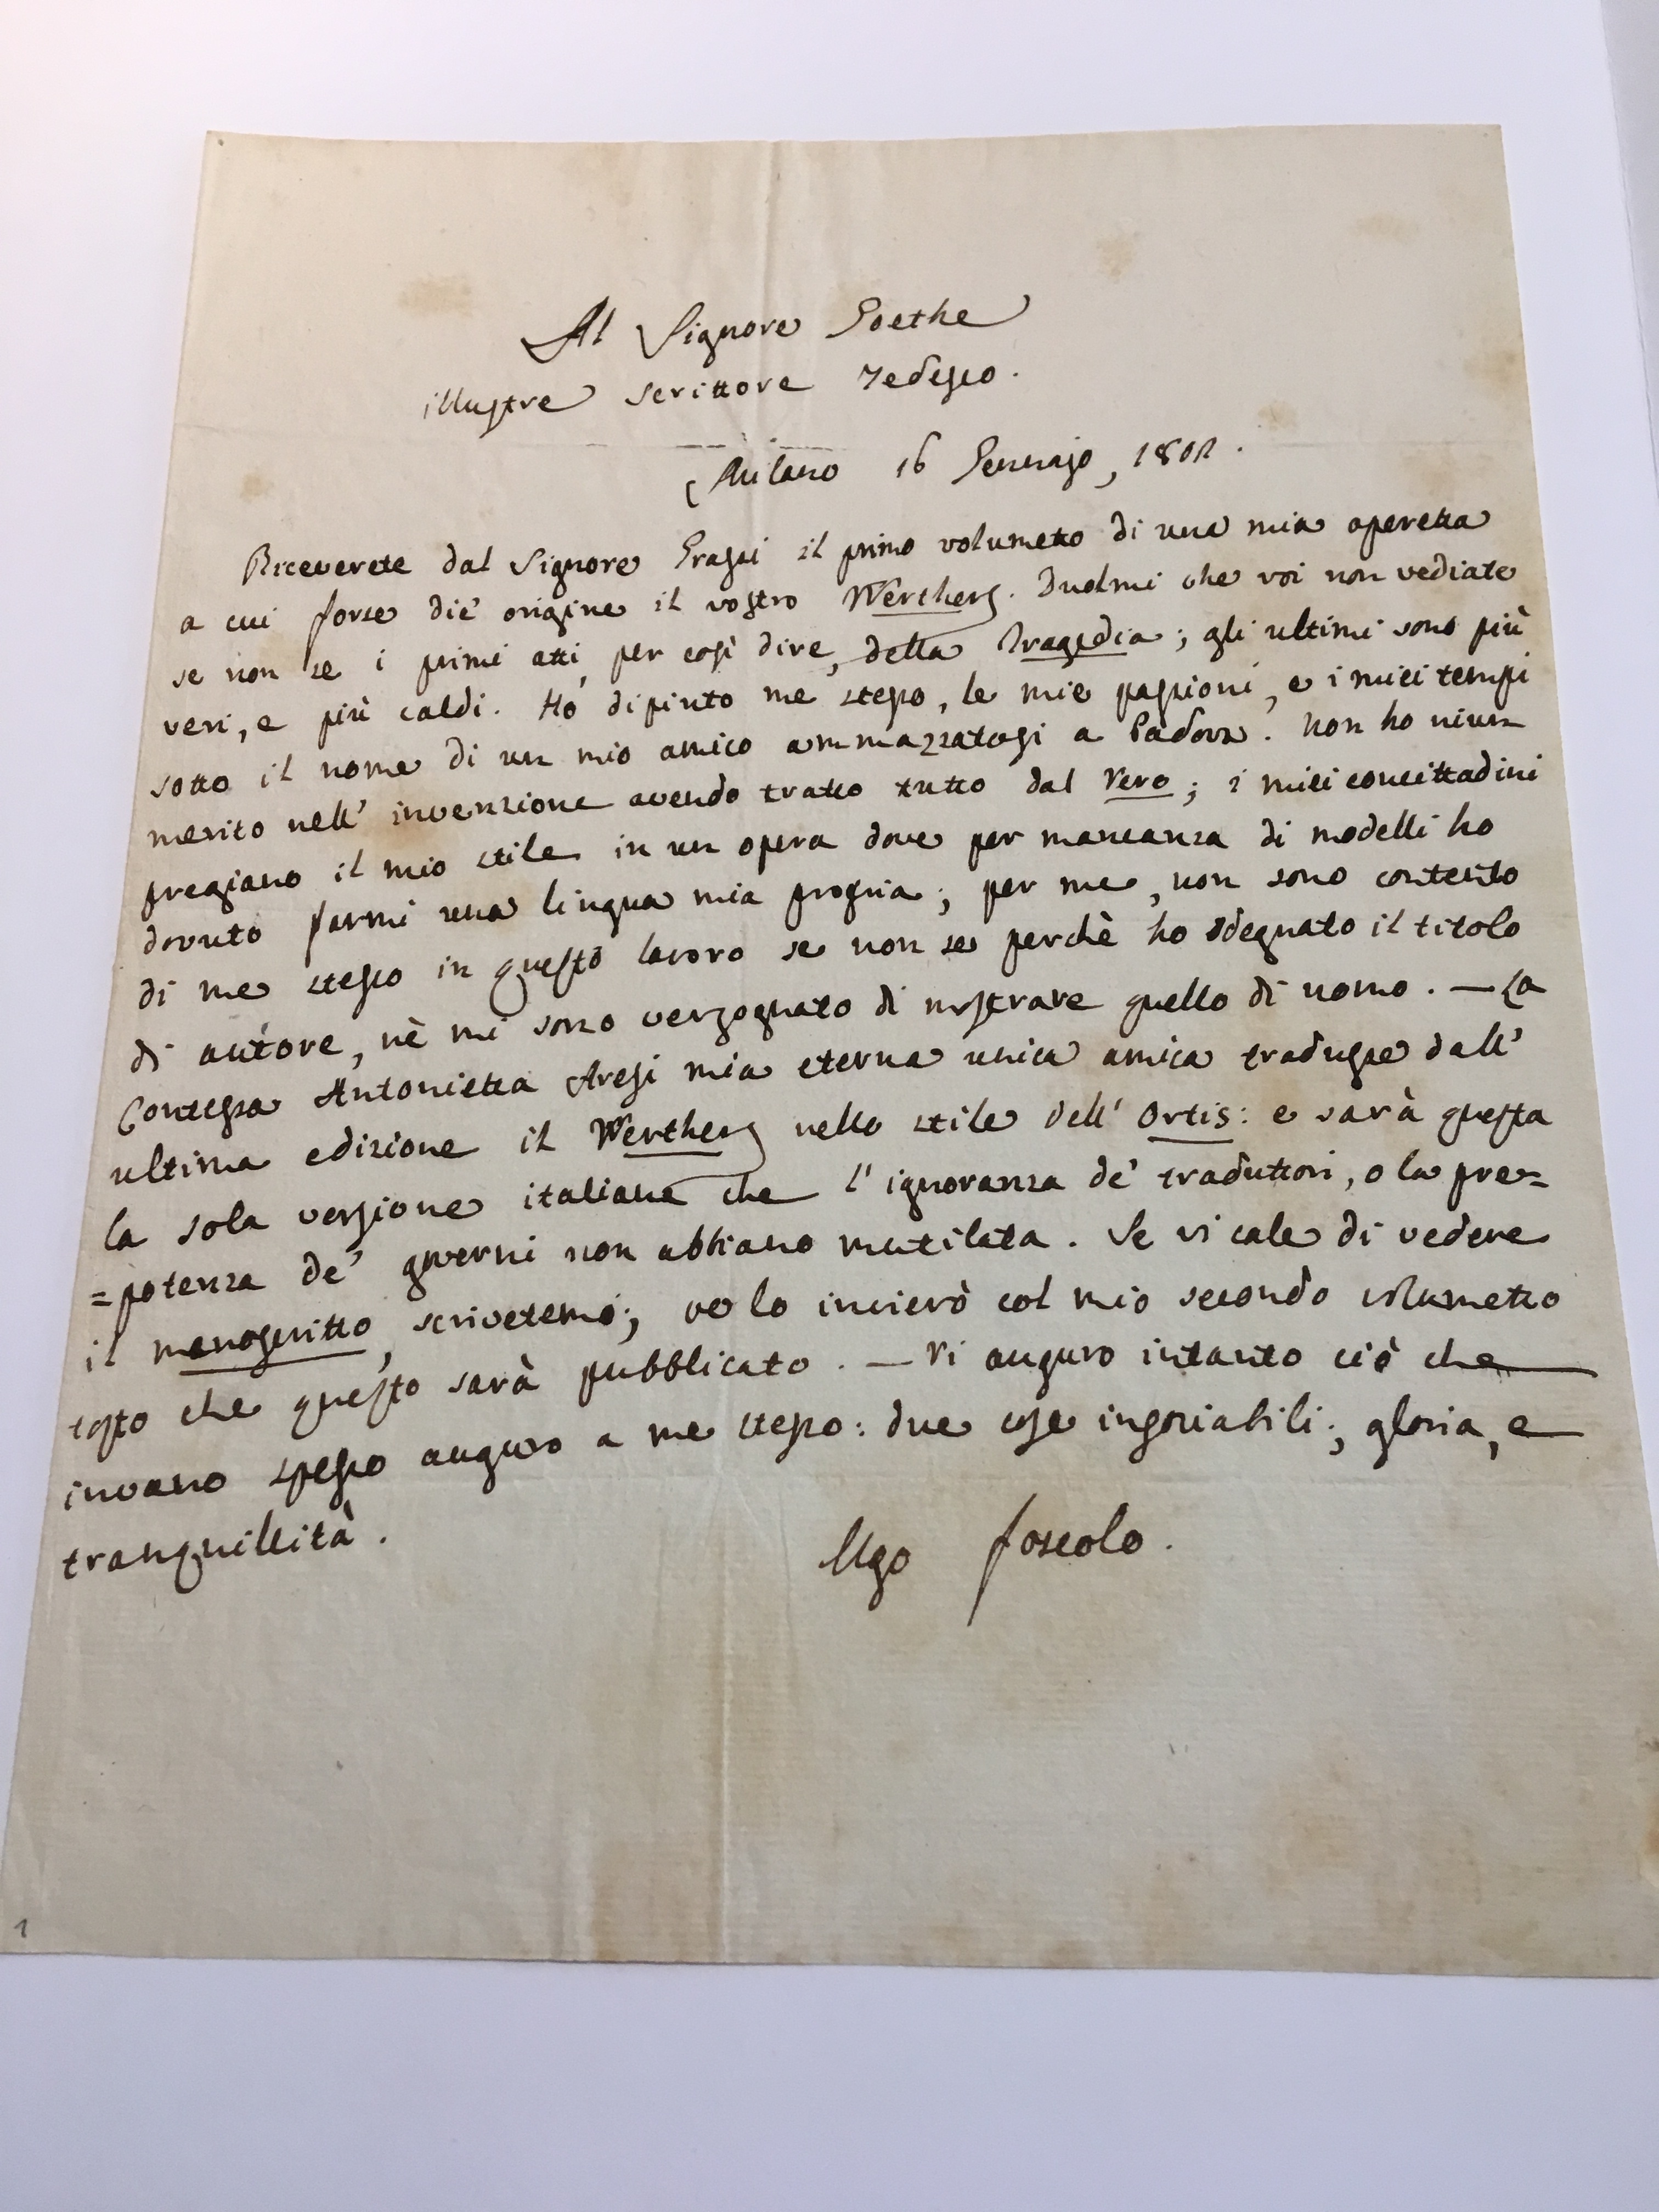 Al Signore Goethe
illustre scrittore Tedesco.
Milano 16 Gennajo, 1802.
Riceverete dal Signore Grassi il primo volumetto di una mia operetta
a cui forse diè origine il vostro Werther. Duolmi che voi non vediate
se non se i primi atti, per così dire, della Tragedia; gli ultimi sono più
veri, e più caldi. Ho dipinto me stesso, le mie passioni, e i miei tempi
sotto il nome di un mio amico ammazzatosi a Padova. Non ho niun
merito nell' invenzione avendo tratto tutto dal vero; i miei concittadini
pregiano il mio stile in un opera dove per mancanza di modelli ho
dovuto farmi una lingua mia propria; per me, non sono contento
di me stesso in questo lavoro se non se perchè ho sdegnato il titolo
di autore, nè mi sono vergognato di mostrare quello di uomo. — La
Contessa Antonietta Aresi mia eterna unica amica tradusse dall'
ultima edizione il Werther nello stile dell' Ortis: e sarà questa
la sola versione italiana che l' ignoranza de' traduttori, o la pre=
=potenza de' governi non abbiano mutilata. Se vi cale di vedere
il manoscritto, scrivetemi; ve lo invierò col mio secondo volumetto
tosto che questo sarà pubblicato. — Vi auguro intanto ciò che
invano spesso auguro a me stesso: due cose insociabili; gloria, e
tranquillità.
Ugo Foscolo.
1